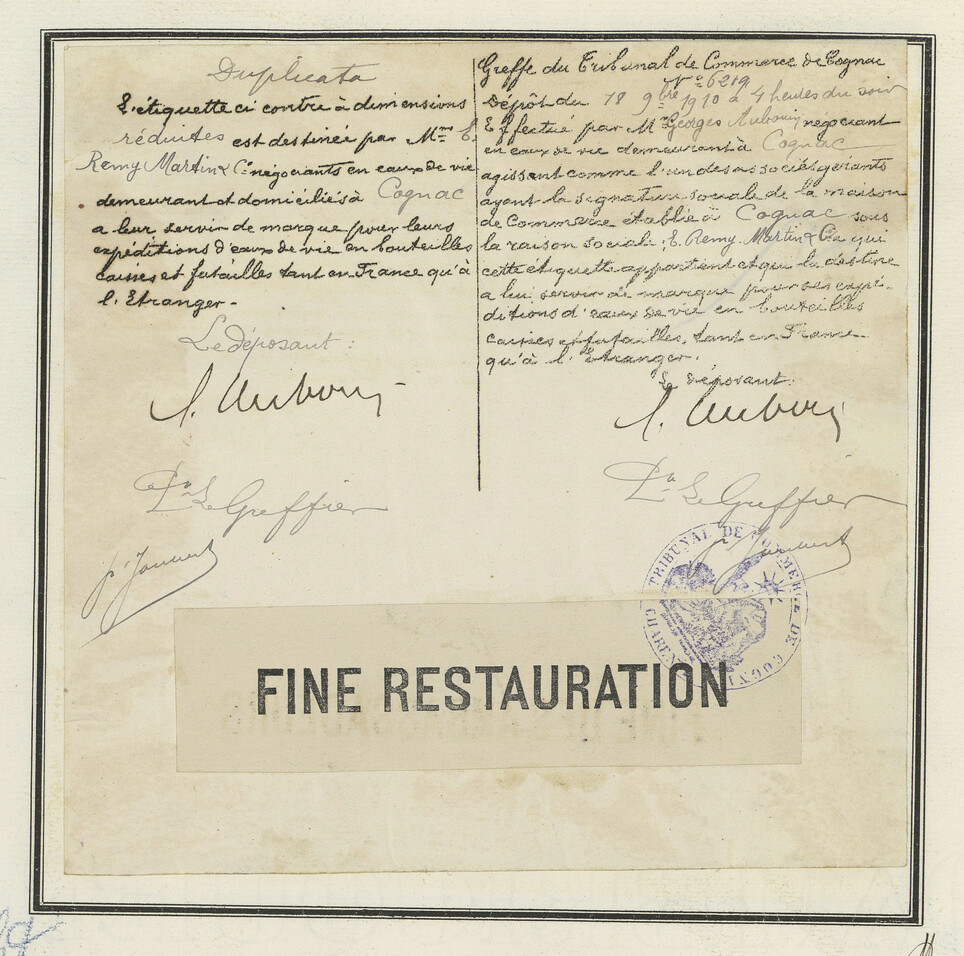 Duplicata
L'étiquette ci contre à dimensions
réduites est destinée par Mrs E.
Remy Martin & Cie négociants en eaux de vie
demeurant et domiciliés à Cognac
a leur servir de marque pour leurs
expéditions d'eaux de vie en bouteilles
caisses et futailles tant en France qu'à
l'Etranger -
Le déposant :
Pr Le Greffier
Greffe du Tribunal de Commerce de Cognac
No 6219
Dépôt du 18 9bre 1910 à 4 heures du soir
Effectué par Mr Georges Auboin négociant
en eaux de vie demeurant à Cognac
agissant comme l'un des associés gérants
ayant la signature sociale de la maison
de Commerce établie à Cognac sous
la raison sociale : E. Remy Martin & Cie qui
cette étiquette appartient et qui la destine
a lui servir de marque pour ses expé-
ditions d'eaux de vie en bouteilles
caisses et futailles, tant en France
qu'à l'étranger.
Le déposant :
Pr Le Greffier
TRIBUNAL DE COMMERCE DE COGNAC
FINE RESTAURATION